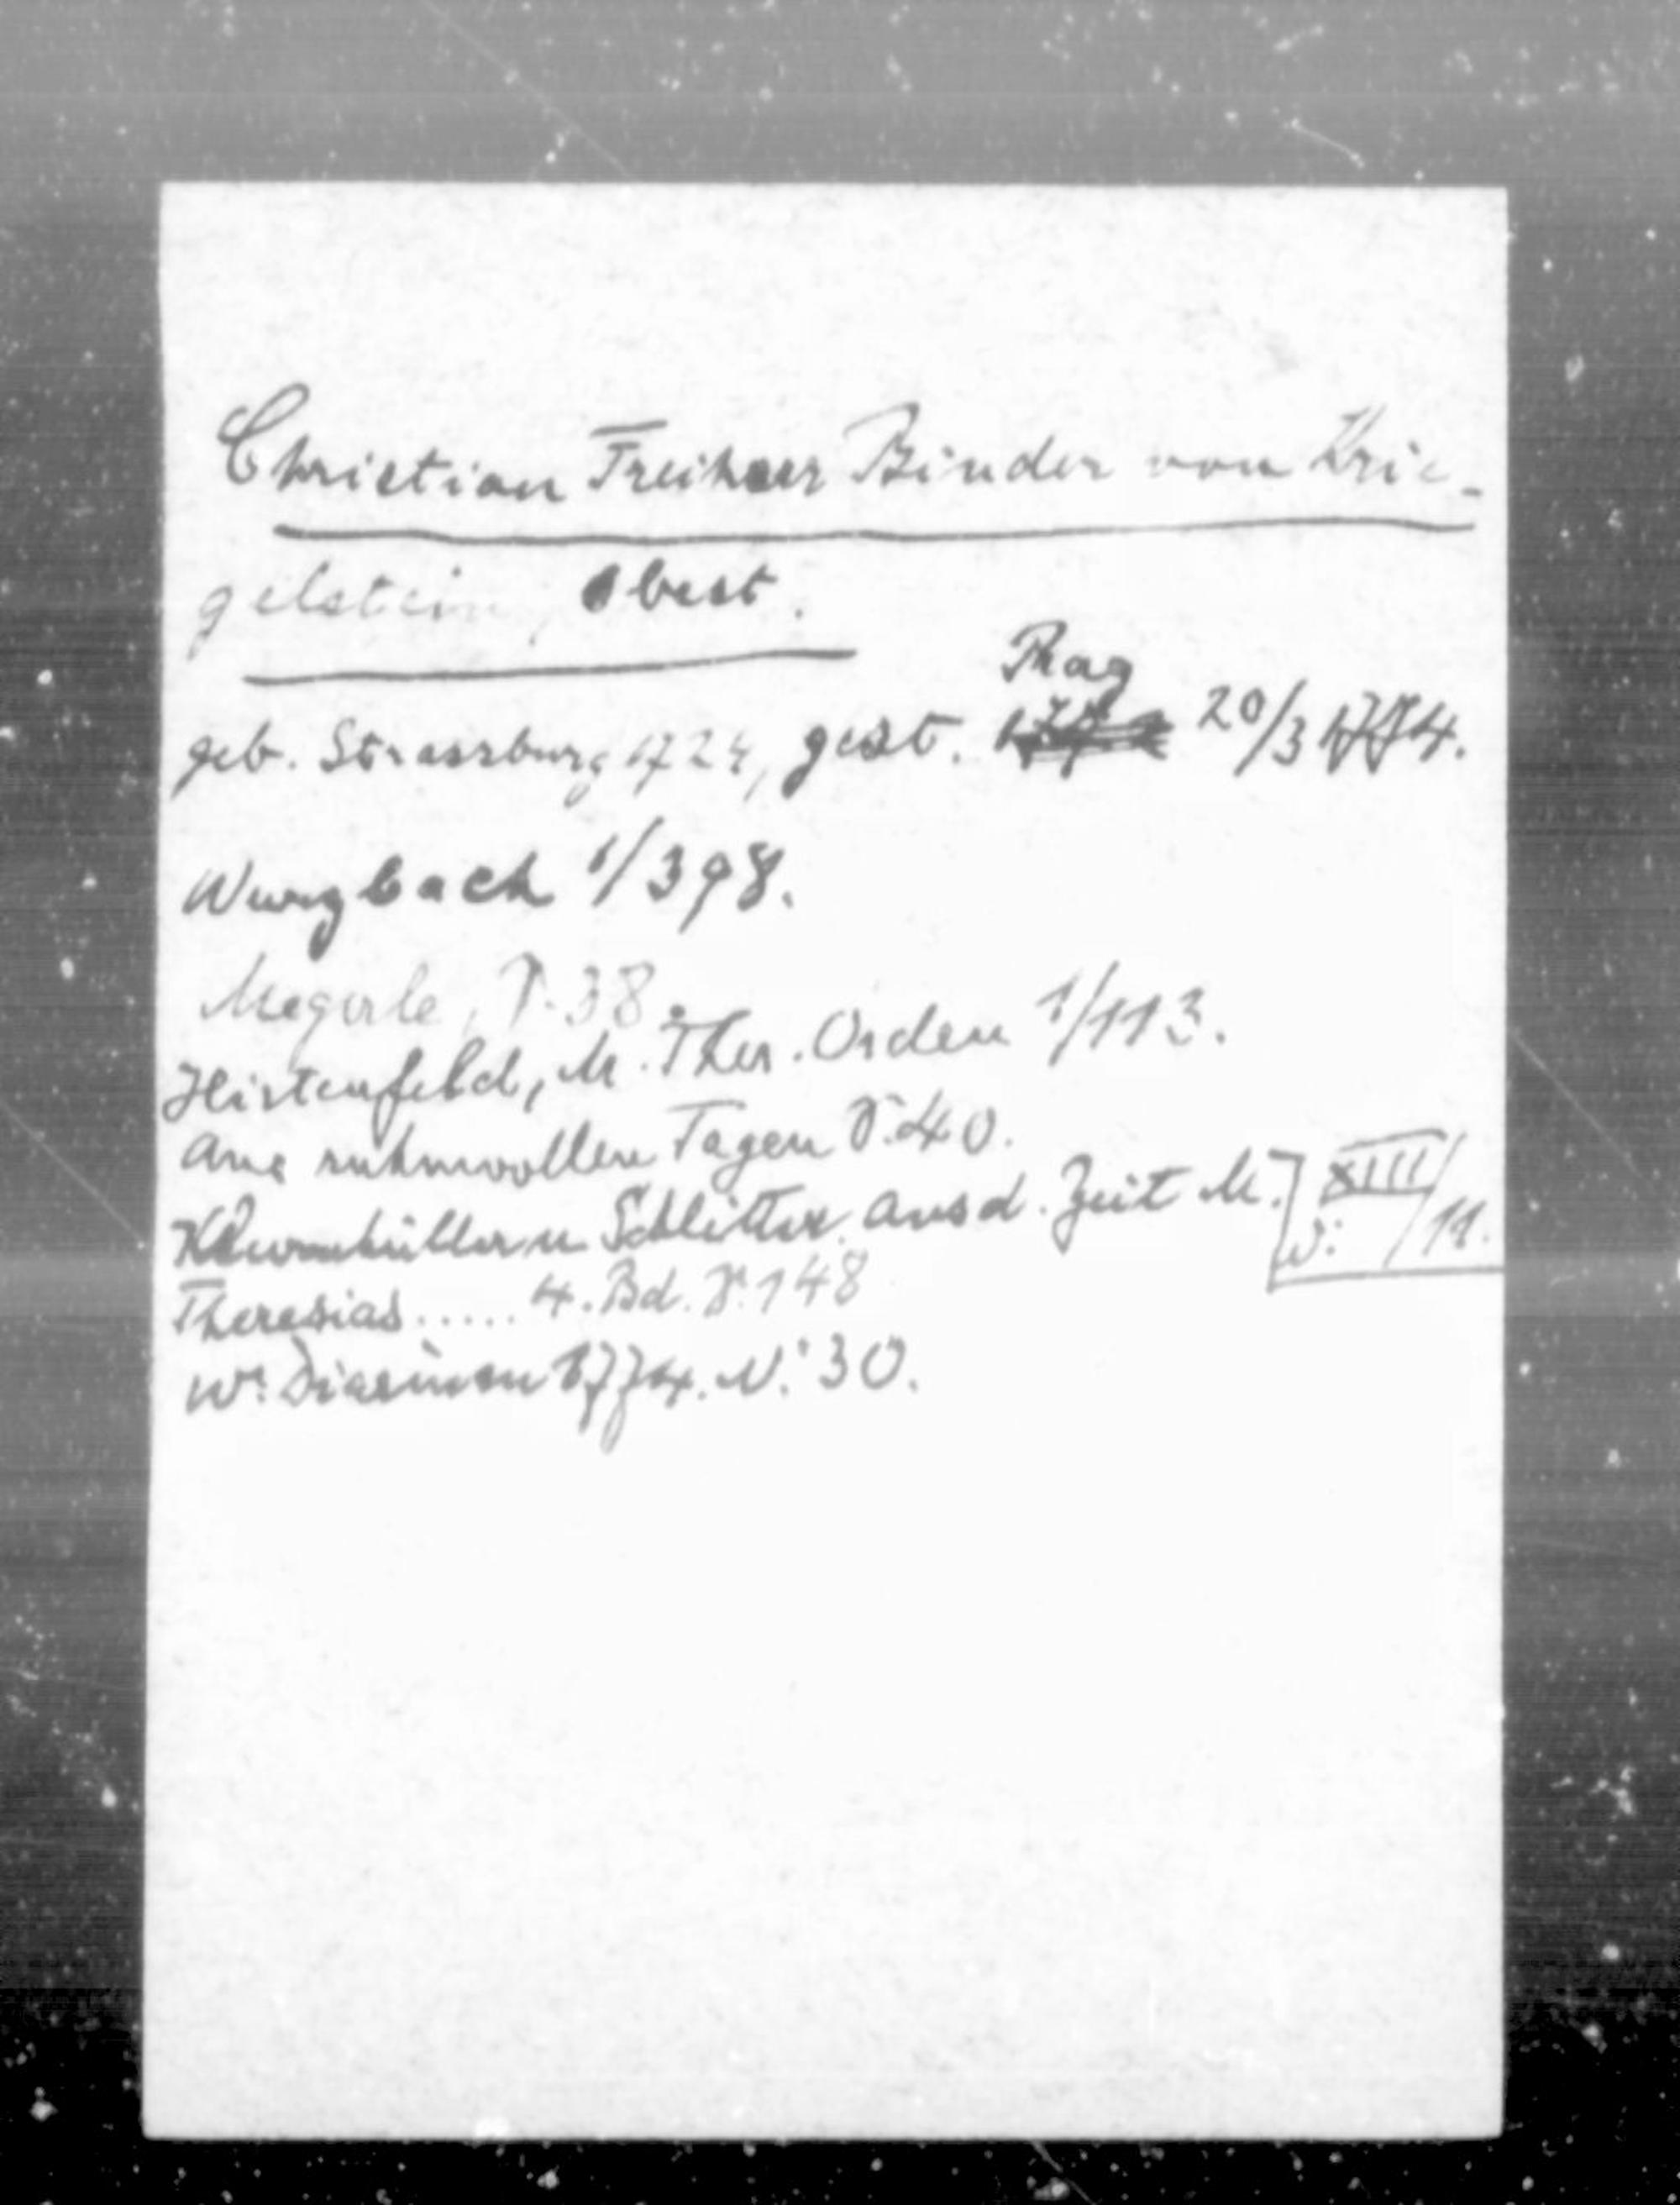 Christian Freiherr Binder von Krie-
gelstein, Obest.
geb. Strassburg 1724, gest. Prag 20/3 1774.
Wurzbach 1/398.
Megerle, S. 38.
Hirtenfeld, M. Ther. Orden 1/113.
Aus ruhmvollen Tagen S. 40.
Khevenhüller u Schlitter. Aus d. Zeit M.
Theresias ..... 4. Bd. S. 148
Wr. Diarium 1774. N. 30.
XIII/11.